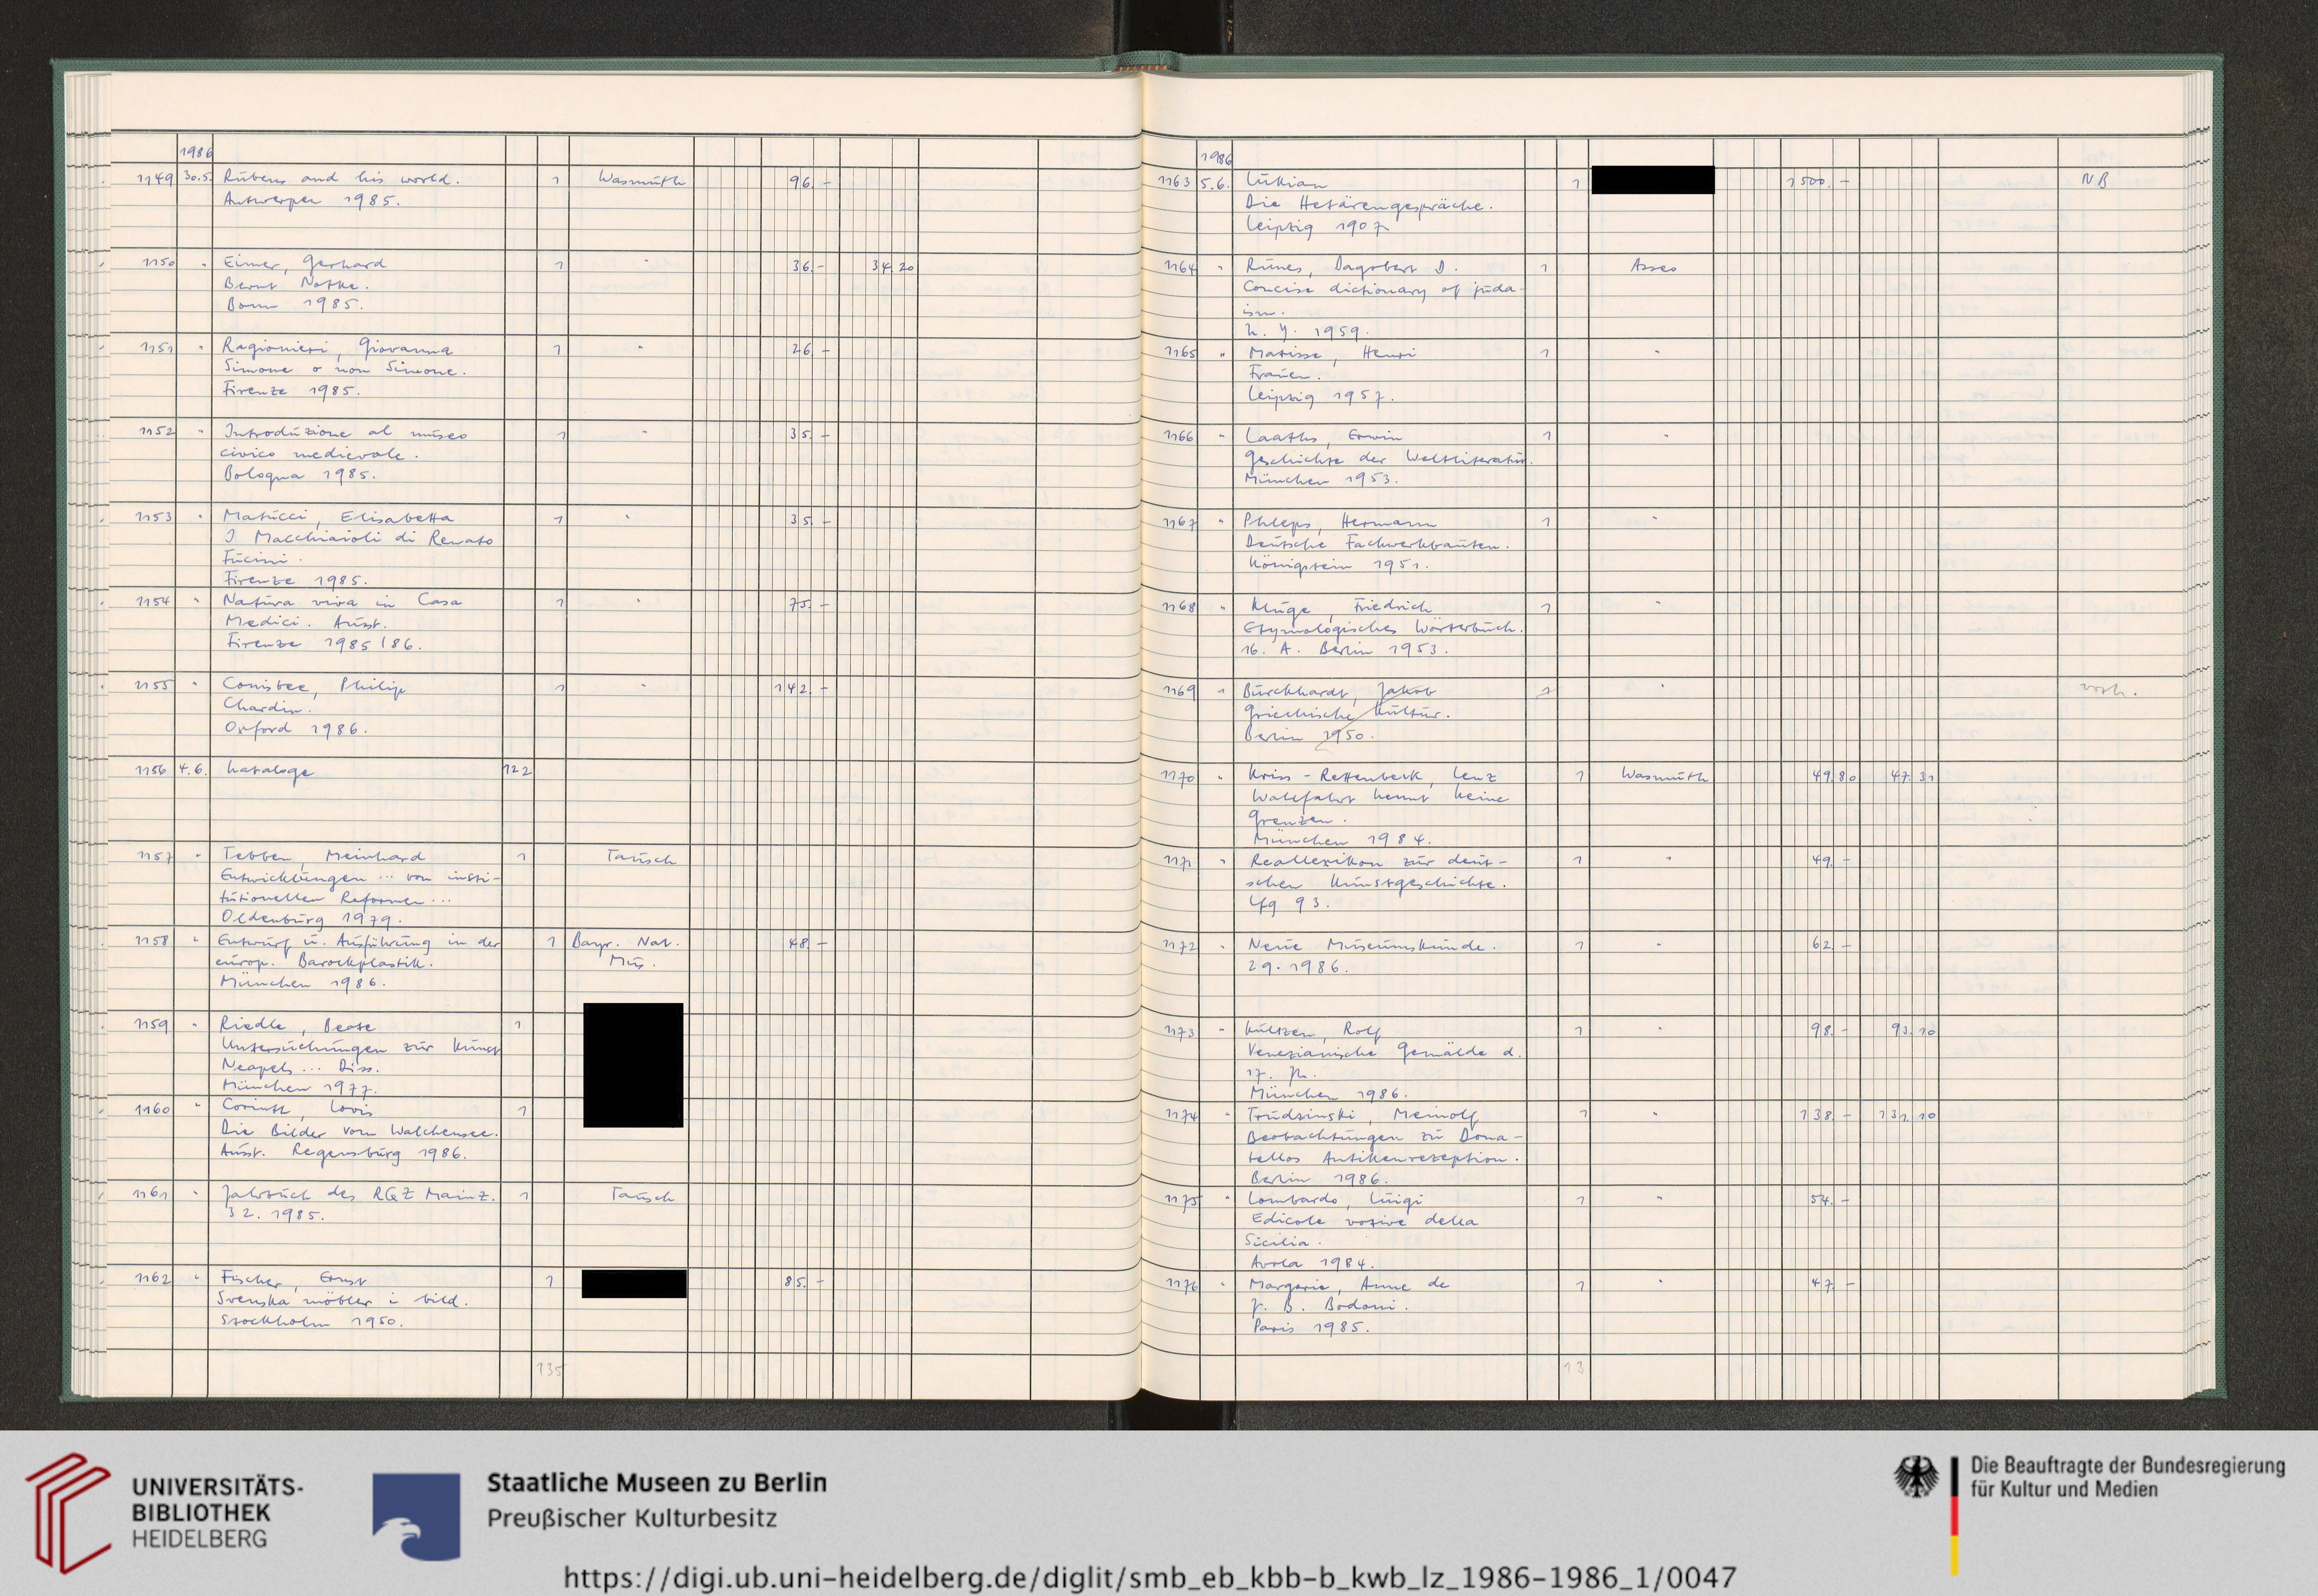 1986
1149 30.5. Rubens and his world. 1 Wasmuth 96.-
Antwerpen 1985.
1150 " Eimer, Gerhard 1 " 36.- 34.20
Bernt Notke.
Bonn 1985.
1151 " Ragionieri, Giovanna 1 " 26.-
Simone o non Simone.
Firenze 1985.
1152 " Introduzione al museo 1 " 35.-
civico medievale.
Bologna 1985.
1153 " Matucci, Elisabetta 1 " 35.-
I Macchiaioli di Renato
Fucini.
Firenze 1985.
1154 " Natura viva in Casa 1 " 75.-
Medici. Ausst.
Firenze 1985/86.
1155 " Conisbee, Philip 1 " 142.-
Chardin.
Oxford 1986.
1156 4.6. Kataloge 122
1157 " Tebben, Meinhard 1 Tausch
Entwicklungen ... von insti-
tutionellen Reformen ...
Oldenburg 1979.
1158 " Entwurf u. Ausführung in der 1 Bayr. Nat. 48.-
europ. Barockplastik. Mus.
München 1986.
1159 " Riedle, Beate 1
Untersuchungen zur Kunst
Neapels ... Diss.
München 1977.
1160 " Corinth, Lovis 1
Die Bilder vom Walchensee.
Ausst. Regensburg 1986.
1161 " Jahrbuch des RGZ Mainz. 1 Tausch
32. 1985.
1162 " Fischer, Ernst 1 85.-
Svenska möbler i bild.
Stockholm 1950.
135
1986
1163 5.6. Lukian 1 1500.- NB
Die Hetärengespräche.
Leipzig 1907
1164 " Runes, Dagobert D. 1 Asses
Concise dictionary of juda-
ism.
N.Y. 1959.
1165 " Matisse, Henri 1 "
Frauen.
Leipzig 1957.
1166 " Laaths, Erwin 1 "
Geschichte der Weltliteratur.
München 1953.
1167 " Phleps, Hermann 1 "
Deutsche Fachwerkbauten.
Königstein 1951.
1168 " Kluge, Friedrich 1 "
Etymologisches Wörterbuch.
16. A. Berlin 1953.
1169 " Burckhardt, Jakob 1 " vorh.
Griechische Kultur.
Berlin 1950.
1170 " Kriss-Rettenbeck, Lenz 1 Wasmuth 49.80 47.31
Wallfahrt kennt keine
Grenzen.
München 1984.
1171 " Reallexikon zur deut- 1 " 49.-
schen Kunstgeschichte.
Lfg 93.
1172 " Neue Museumskunde. 1 " 62.-
29. 1986.
1173 " Kultzen, Rolf 1 " 98.- 93.10
Venezianische Gemälde d.
17. Jh.
München 1986.
1174 " Trudzinski, Meinolf 1 " 138.- 131.10
Beobachtungen zu Dona-
tellos Antikenrezeption.
Berlin 1986.
1175 " Lombardo, Luigi 1 " 54.-
Edicole votive della
Sicilia.
Avola 1984.
1176 " Margerie, Anne de 1 " 47.-
J. B. Bodoni.
Paris 1985.
13
UNIVERSITÄTS-
BIBLIOTHEK
HEIDELBERG
Staatliche Museen zu Berlin
Preußischer Kulturbesitz
Die Beauftragte der Bundesregierung
für Kultur und Medien
https://digi.ub.uni-heidelberg.de/diglit/smb_eb_kbb-b_kwb_lz_1986-1986_1/0047